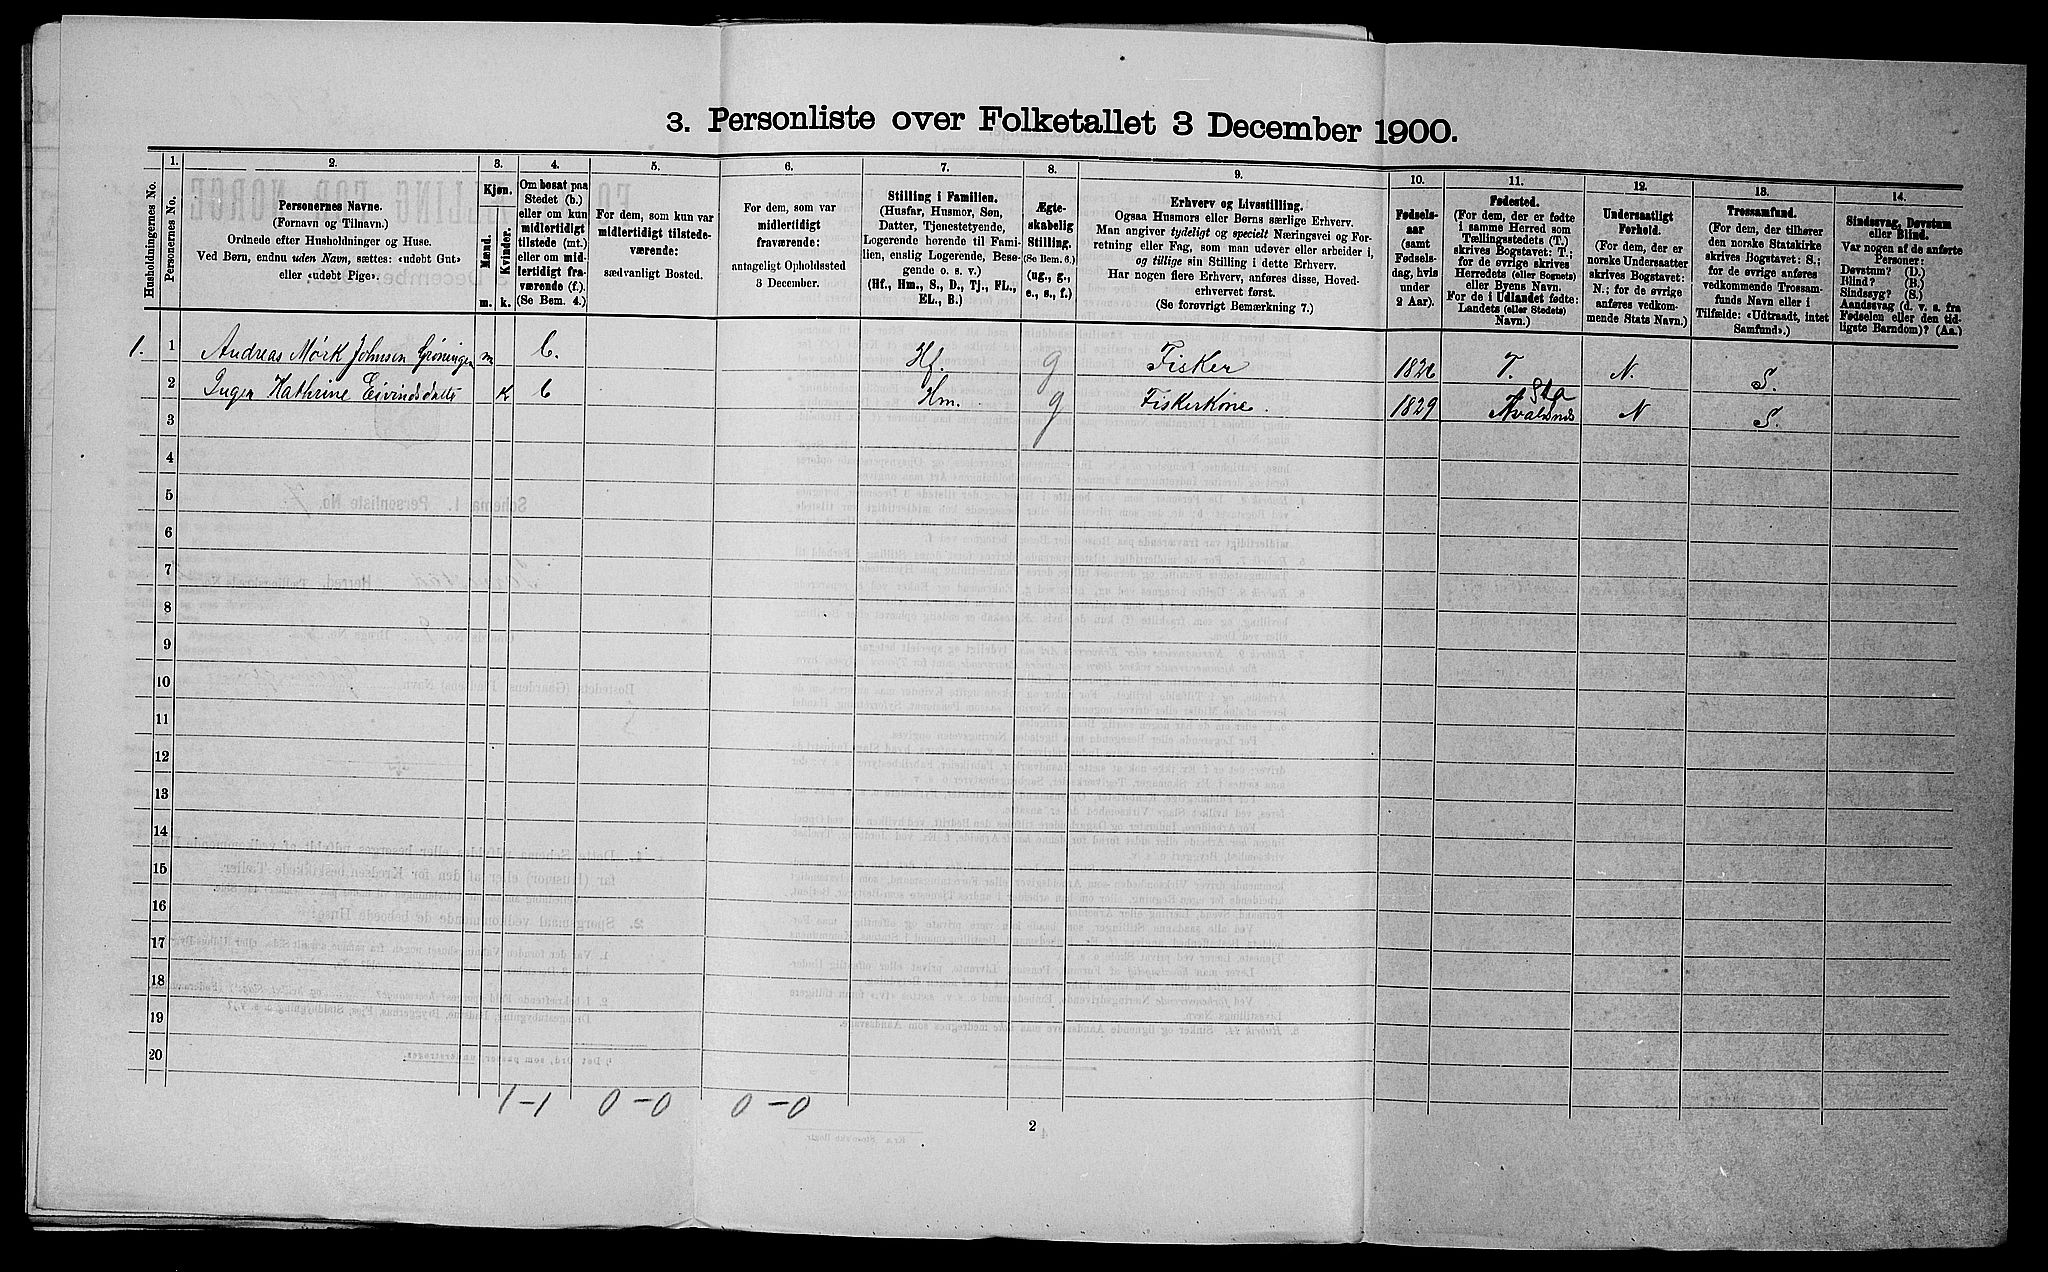 3. Personliste over Folketallet 3 December 1900.
Husholdningernes No.
1.
Personernes No.
2.
Personernes Navne.
(Fornavn og Tilnavn.)
Ordnede efter Husholdninger og Huse.
Ved Børn, endnu uden Navn, sættes: «udøbt Gut»
eller «udøbt Pige».
3.
Kjøn.
Mænd.
Kvinder.
m. k.
4.
Om bosat paa
Stedet (b.)
eller om kun
midlertidigt
tilstede (mt.)
eller om mid-
lertidigt fra-
værende (f.).
(Se Bem. 4.)
5.
For dem, som kun var
midlertidigt tilstede-
værende:
sædvanligt Bosted.
6.
For dem, som var
midlertidigt
fraværende:
antageligt Opholdssted
3 December.
7.
Stilling i Familien.
(Husfar, Husmor, Søn,
Datter, Tjenestetyende,
Logerende hørende til Fami-
lien, enslig Logerende, Besø-
gende o. s. v.)
(Hf., Hm., S., D., Tj., FL.,
EL., B.)
8.
Ægte-
skabelig
Stilling.
(Se Bem. 6.)
(ug., g.,
e., s., f.)
9.
Erhverv og Livsstilling.
Ogsaa Husmors eller Børns særlige Erhverv.
Man angiver tydeligt og specielt Næringsvei og For-
retning eller Fag, som man udøver eller arbeider i,
og tillige sin Stilling i dette Erhverv.
Har nogen flere Erhverv, anføres disse, Hoved-
erhvervet først.
(Se forøvrigt Bemærkning 7.)
10.
Fødsels-
aar
(samt
Fødsels-
dag, hvis
under
2 Aar).
11.
Fødested.
(For dem, der er fødte
i samme Herred som
Tællingsstedets (T.)
skrives Bogstavet: T.;
for de øvrige skrives
Herredets (eller Sognets)
eller Byens Navn.
For de i Udlandet fødte:
Landets (eller Stedets)
Navn.)
12.
Undersaatligt
Forhold.
(For dem, der er
norske Undersaatter
skrives Bogstavet:
N.; for de øvrige
anføres vedkom-
mende Stats Navn.)
13.
Trossamfund.
(For dem, der tilhører
den norske Statskirke
skrives Bogstavet: S.;
for de øvrige anføres
vedkommende Trossam-
funds Navn eller i
Tilfælde: «Udtraadt, intet
Samfund».)
14.
Sindssvag, Døvstum
eller Blind.
Var nogen af de anførte
Personer:
Døvstum? (D.)
Blind? (B.)
Sindssyg? (S.)
Aandssvag (d. v. s. fra
Fødselen eller den tid-
ligste Barndom)? (Aa.)
1. 1 Andreas Mørk Johnsen Grøningen m b. Hf. g Fisker 1826 T. N. S.
2 Inger Kathrine Eivindsdatt k b Hm. g Fiskerkone. 1829 Sta N S.
3
4
5
6
7
8
9
10
11
12
13
14
15
16
17
18
19
20
1-1 0-0 0-0
2